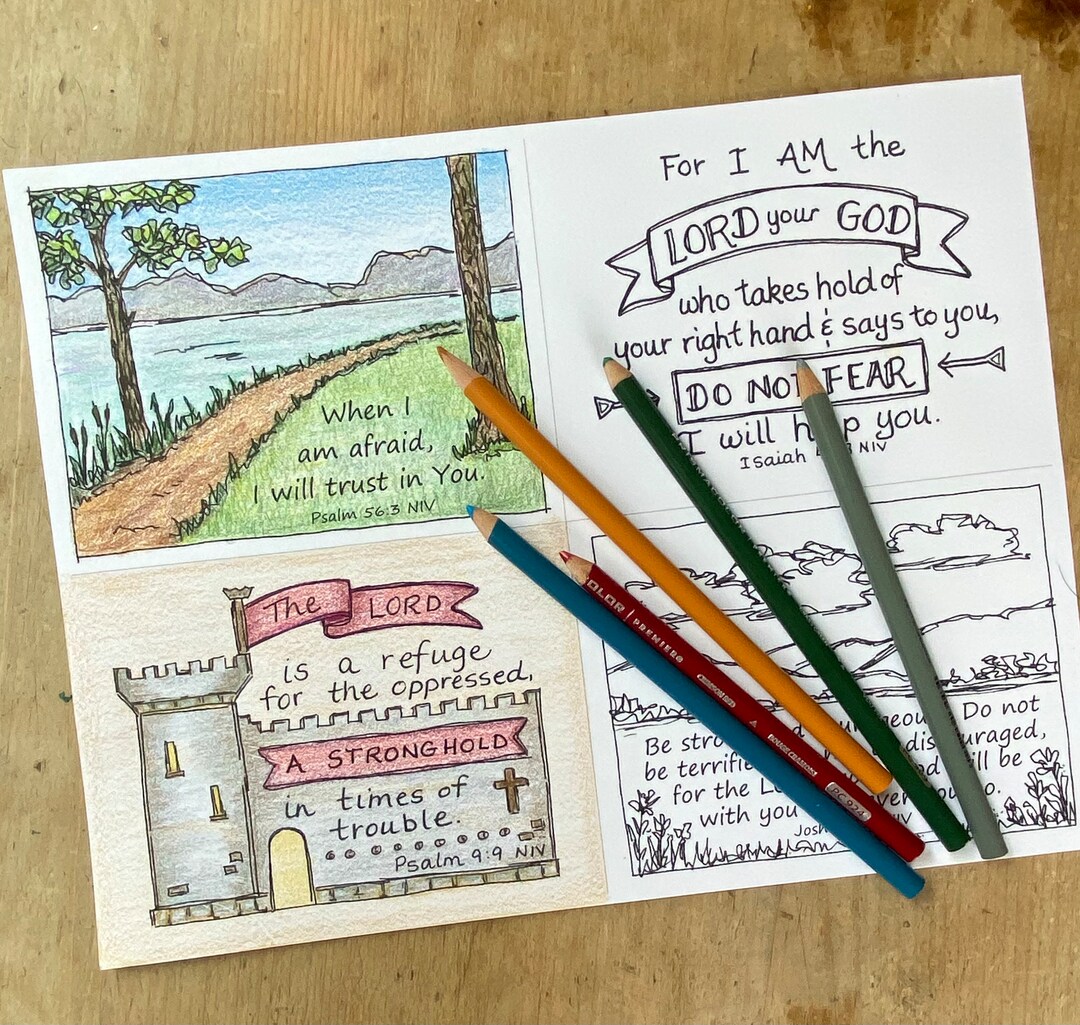 When I
am afraid,
I will trust in You.
Psalm 56:3 NIV
For I AM the
LORD your GOD
who takes hold of
your right hand & says to you,
DO NOT FEAR
I will help you.
Isaiah NIV
The LORD
is a refuge
for the oppressed,
A STRONGHOLD
in times of
trouble.
Psalm 9:9 NIV
Be Do not
be
for the
with you
PREMIER
CRIMSON RED
PC 924